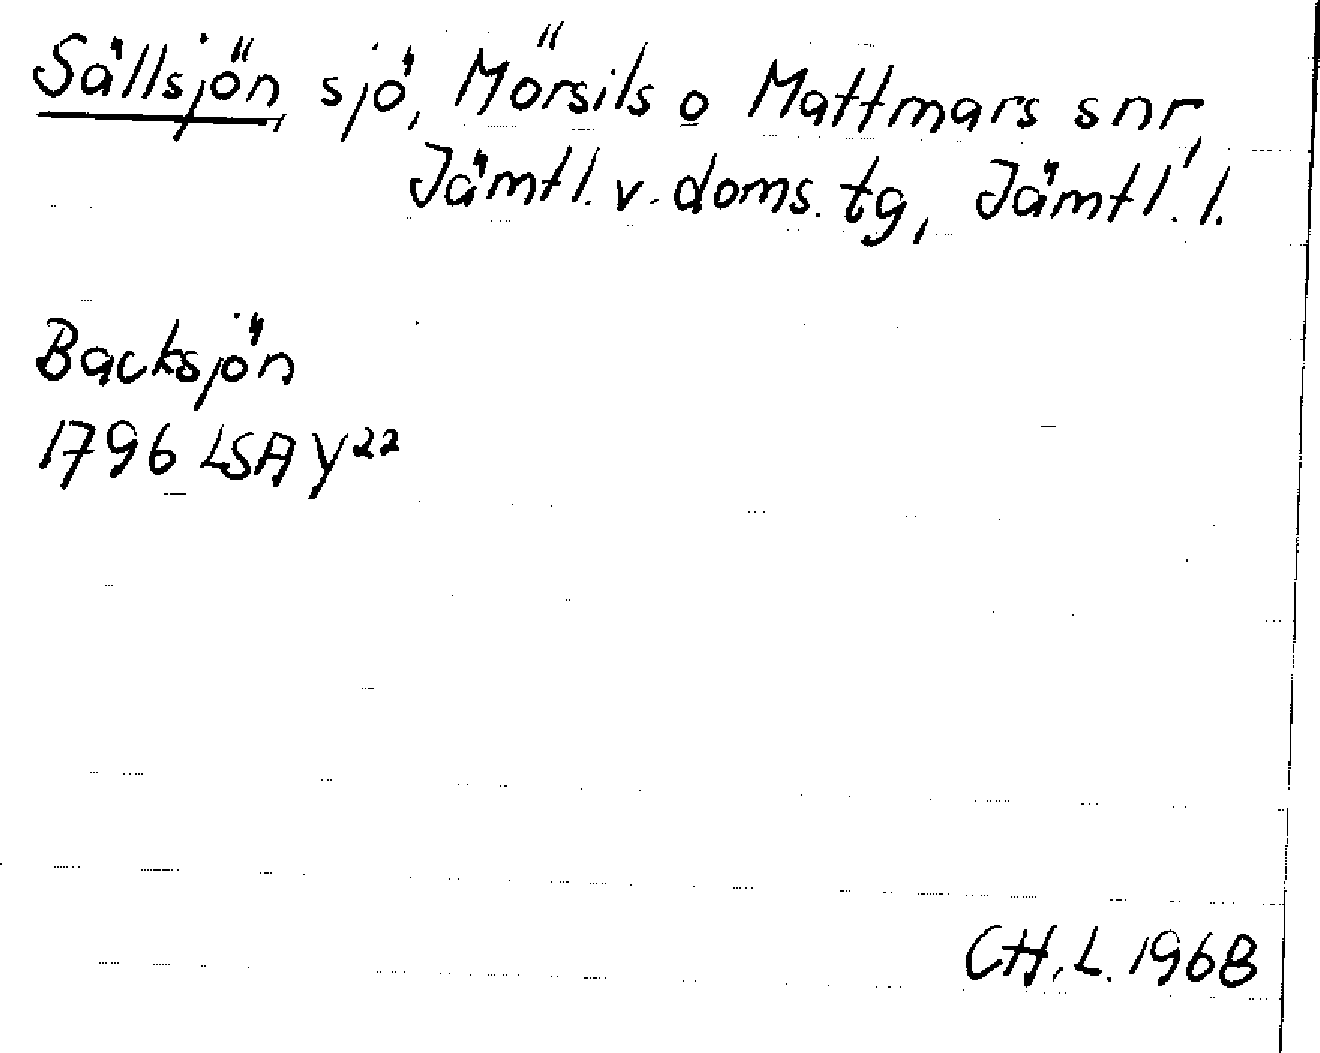 Sällsjön, sjö, Mörsils o Mattmars snr,
Jämtl. v. doms. tg, Jämtl. l.
Backsjön
1796 LSA Y22
CH. L. 1968